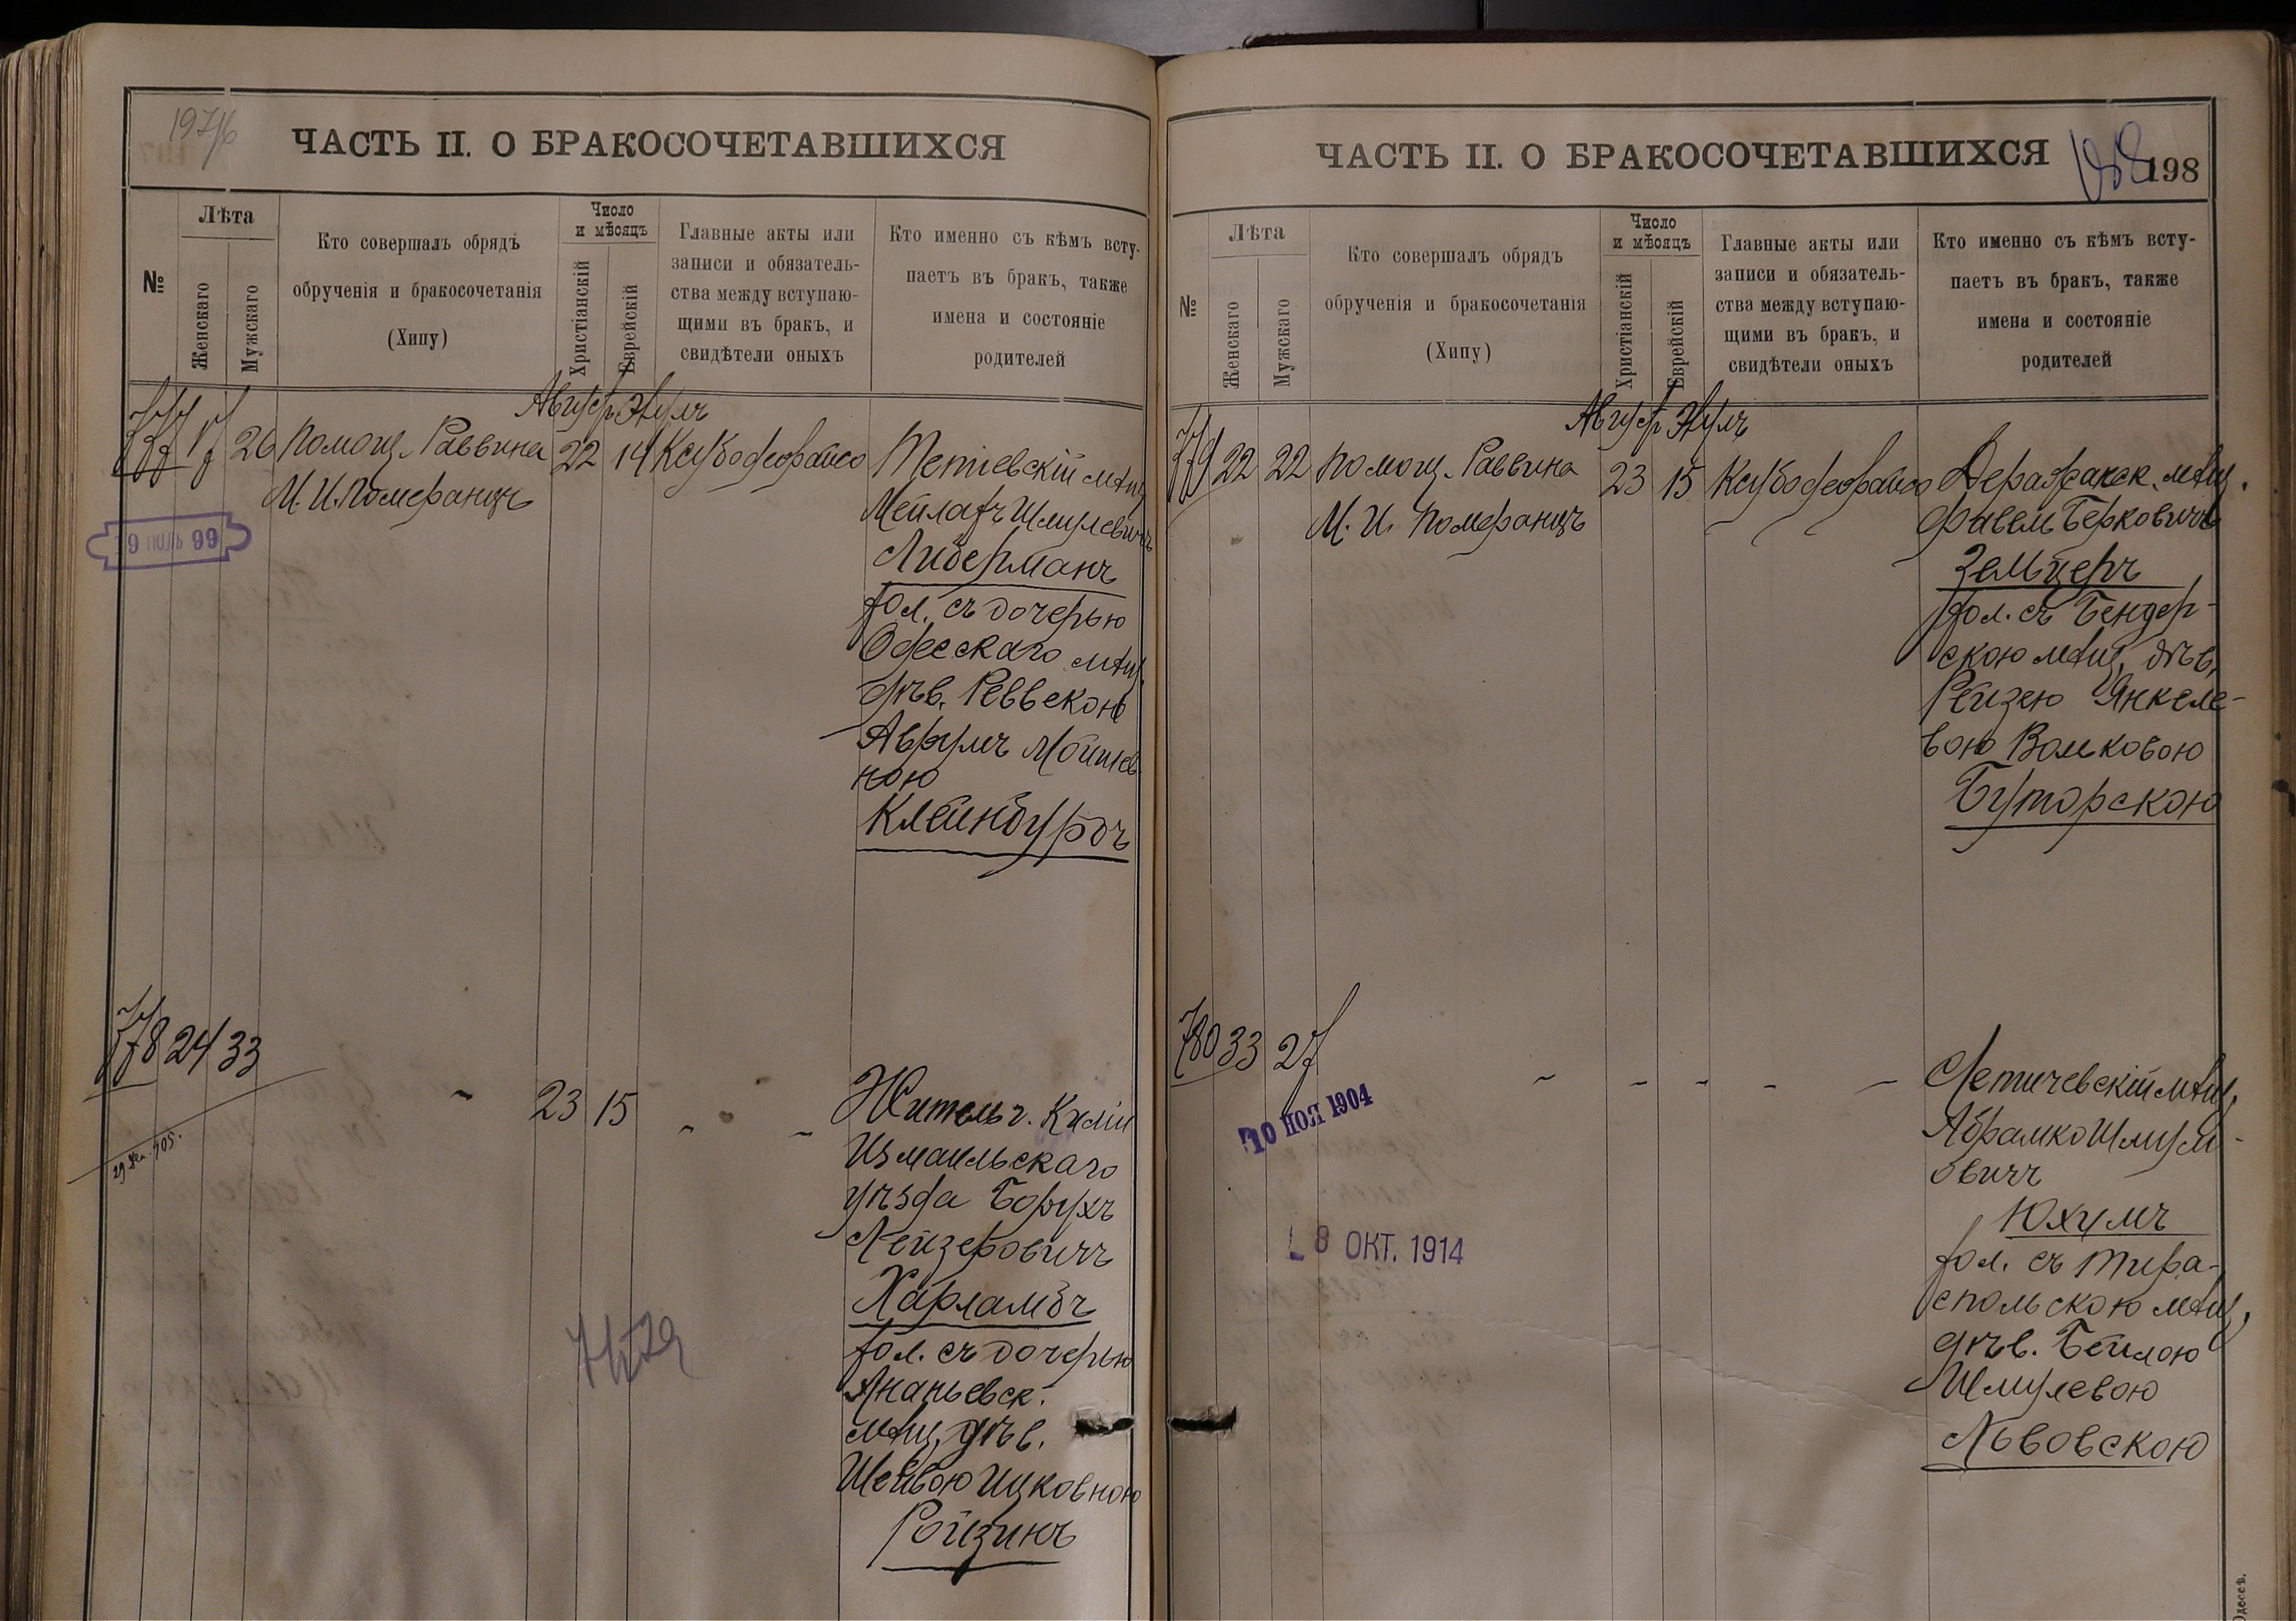 ЧАСТЬ II. О БРАКОСОЧЕТАВШИХСЯ
№
Лѣта
Женскаго
Мужскаго
Кто совершалъ обрядъ
обрученія и бракосочетанія
(Хипу)
Число
и мѣсяцъ
Христіанскій
Еврейскій
Главные акты или
записи и обязатель-
ства между вступаю-
щими въ бракъ, и
свидѣтели оныхъ
Кто именно съ кѣмъ всту-
паетъ въ бракъ, также
имена и состояніе
родителей
Август Элулъ
777 17 26 Помощ. Раввина 22 14
М. И. Померанцъ
9 99
Тетіевскій мѣщ.
Мейлахъ Шмулевичъ
Либерманъ
хол. съ дочерью
Одесскаго мѣщ.
дѣв. Реввекою
Аврумъ Мошков
ною
Клейнбурдъ
778 24 33 23 15
29 Дек. 905.
Житель г. Киліи
Измаильскаго
уѣзда Борухъ
Лейзеровичъ
Харламбъ
хол. съ дочерью
Ананьевск.
мѣщ. дѣв.
Шейвою Ицковною
Ройзинъ
ЧАСТЬ II. О БРАКОСОЧЕТАВШИХСЯ
198
№
Лѣта
Женскаго
Мужскаго
Кто совершалъ обрядъ
обрученія и бракосочетанія
(Хипу)
Число
и мѣсяцъ
Христіанскій
Еврейскій
Главные акты или
записи и обязатель-
ства между вступаю-
щими въ бракъ, и
свидѣтели оныхъ
Кто именно съ кѣмъ всту-
паетъ въ бракъ, также
имена и состояніе
родителей
Август Элулъ
779 22 22 Помощ. Раввина 23 15
М. И. Померанцъ
Деражанск. мѣщ.
Файвель Берковичъ
Зельцеръ
хол. съ Бендер-
скою мѣщ. дѣв.
Рейзею Янкеле-
вою Волковою
Буторскою
780 33 27
10 НОЯ 1904
8 ОКТ. 1914
Летичевскій мѣщ.
Абрамко Шмуль-
овичъ
Юхумъ
хол. съ Тира-
спольскою мѣщ.
дѣв. Бейлою
Шмулевою
Львовскою